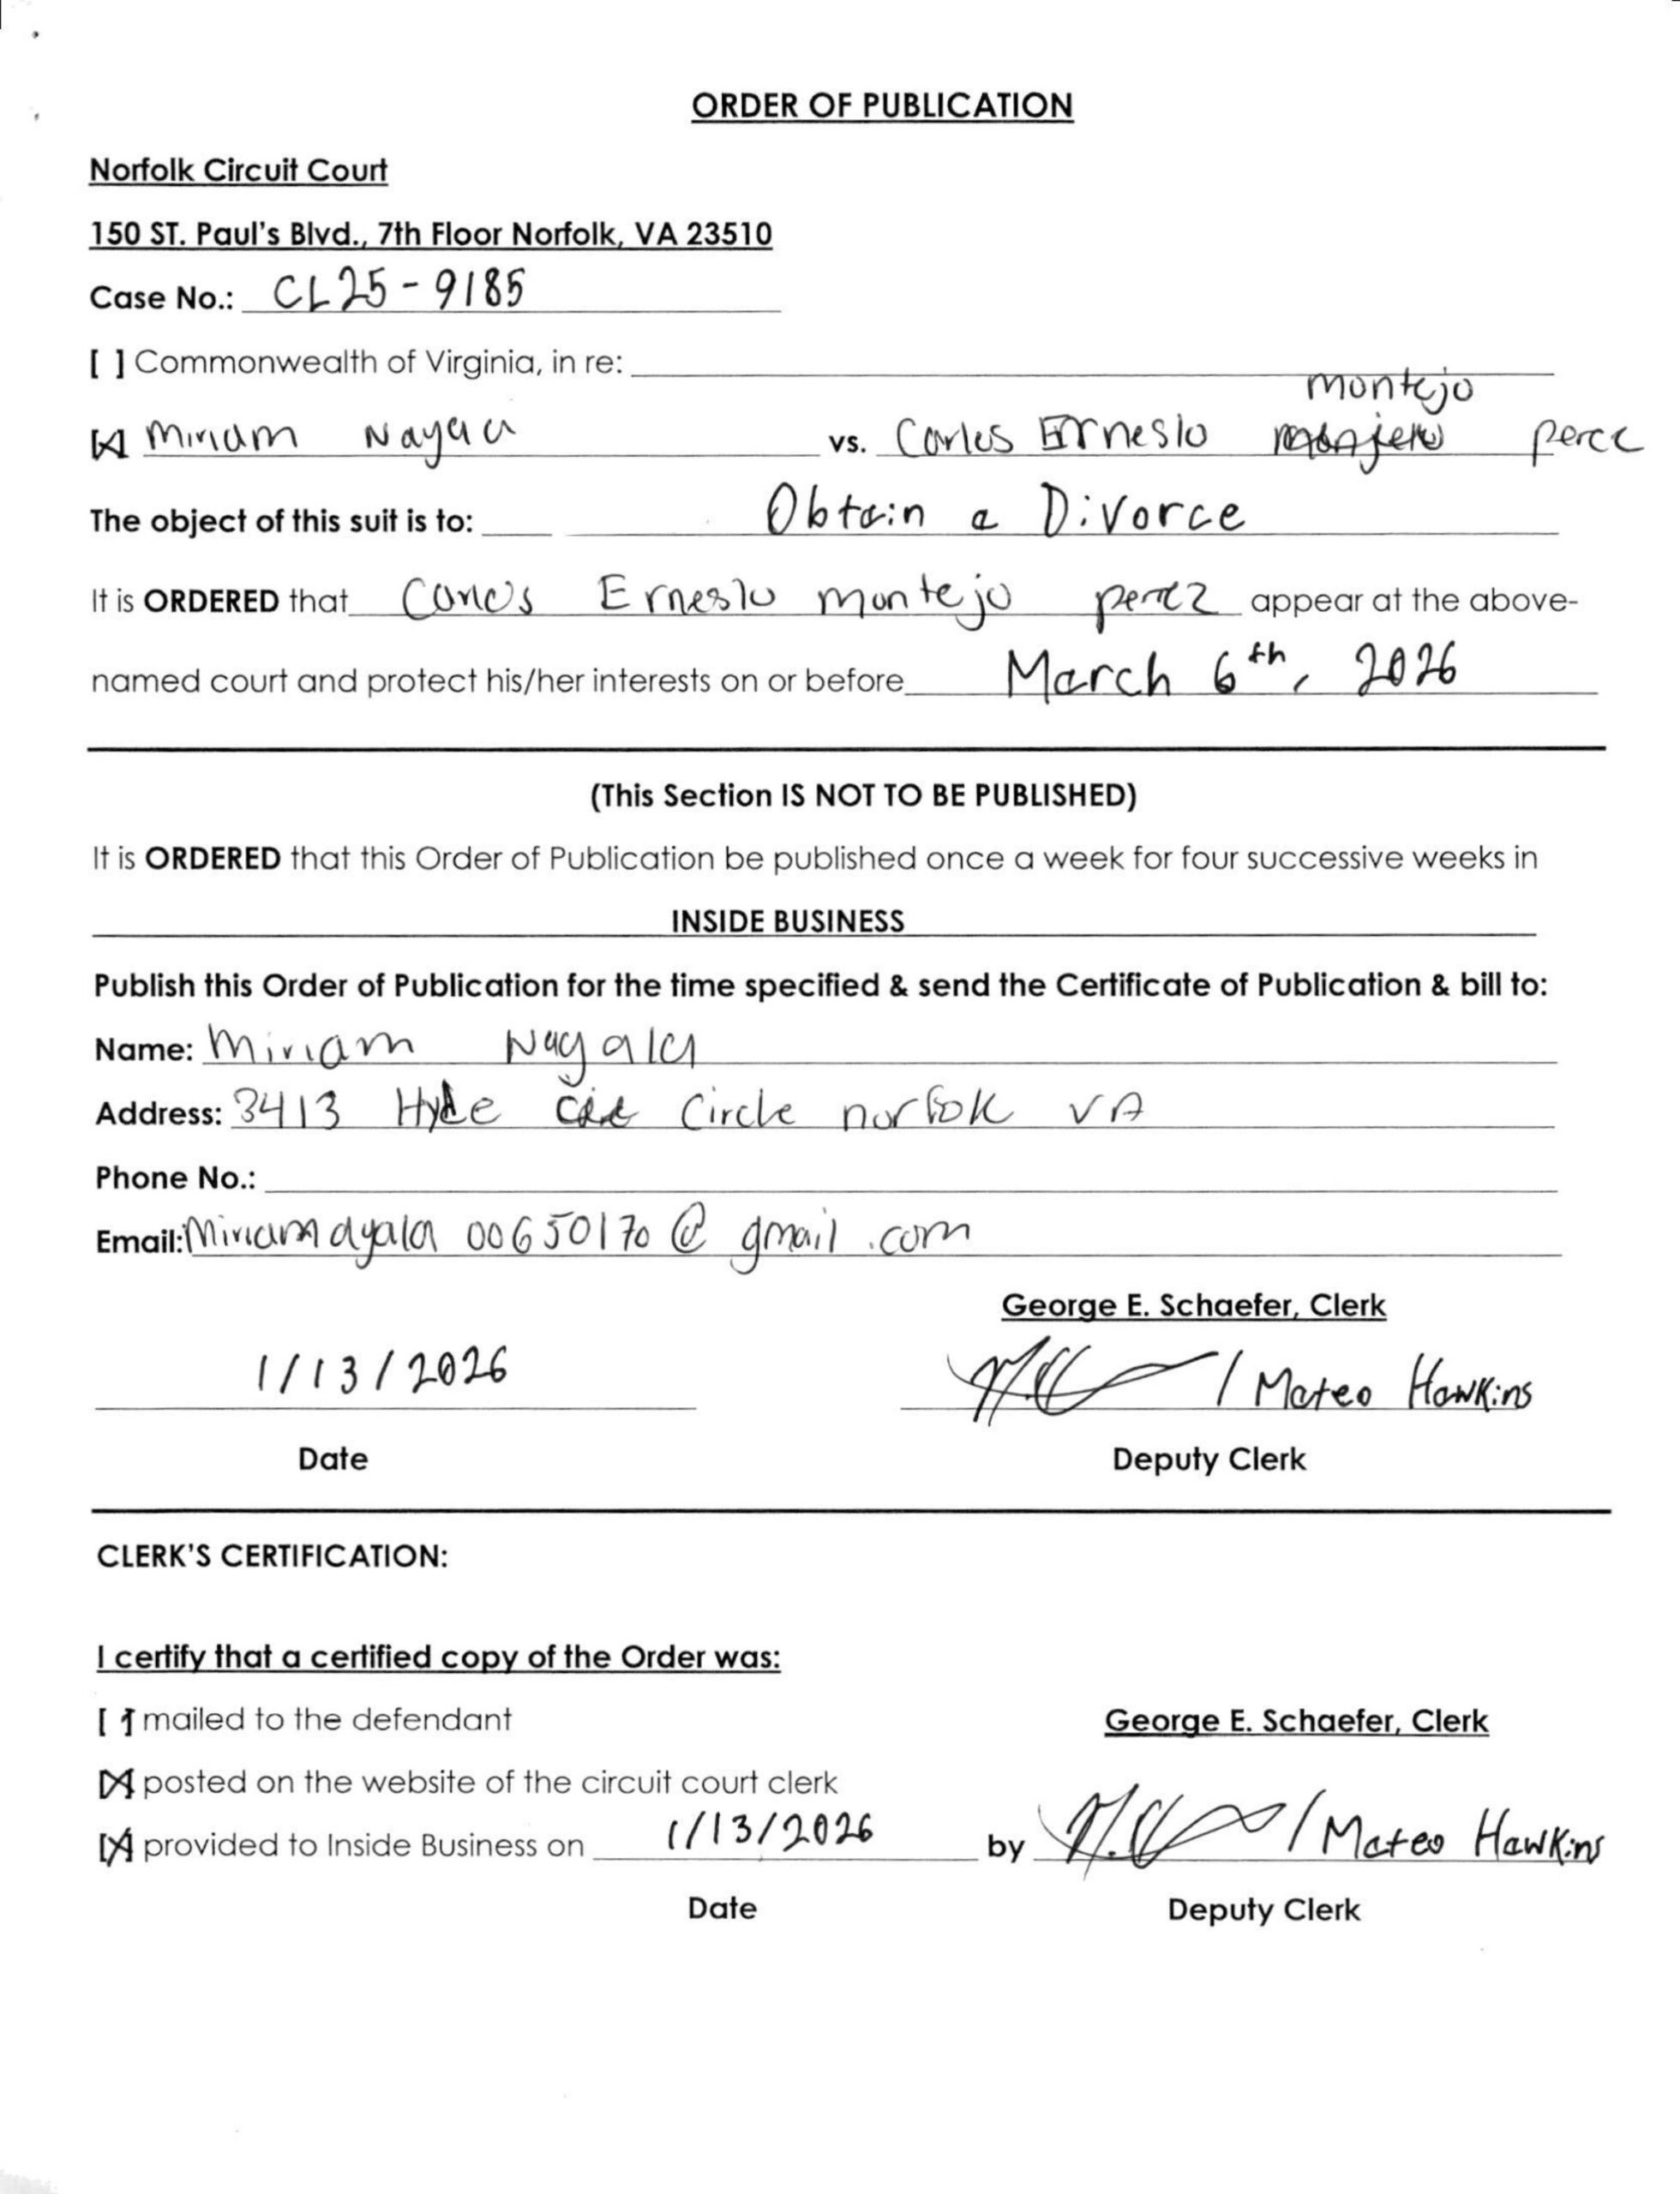 ORDER OF PUBLICATION
Norfolk Circuit Court
150 ST. Paul's Blvd., 7th Floor Norfolk, VA 23510
Case No.: CL25-9185
[ ] Commonwealth of Virginia, in re:
montejo
[X] Miriam vs. Carlos Ernesto
The object of this suit is to: Obtain a Divorce
It is ORDERED that Carlos Ernesto montejo perez appear at the above-
named court and protect his/her interests on or before March 6th, 2026
(This Section IS NOT TO BE PUBLISHED)
It is ORDERED that this Order of Publication be published once a week for four successive weeks in
INSIDE BUSINESS
Publish this Order of Publication for the time specified & send the Certificate of Publication & bill to:
Name: Miriam
Address: 3413 Circle norfolk VA
Phone No.:
Email: Miriamayala00650170@gmail.com
George E. Schaefer, Clerk
1/13/2026 / Mateo Hawkins
Date Deputy Clerk
CLERK'S CERTIFICATION:
I certify that a certified copy of the Order was:
[ ] mailed to the defendant George E. Schaefer, Clerk
[X] posted on the website of the circuit court clerk
[X] provided to Inside Business on 1/13/2026 by / Mateo Hawkins
Date Deputy Clerk